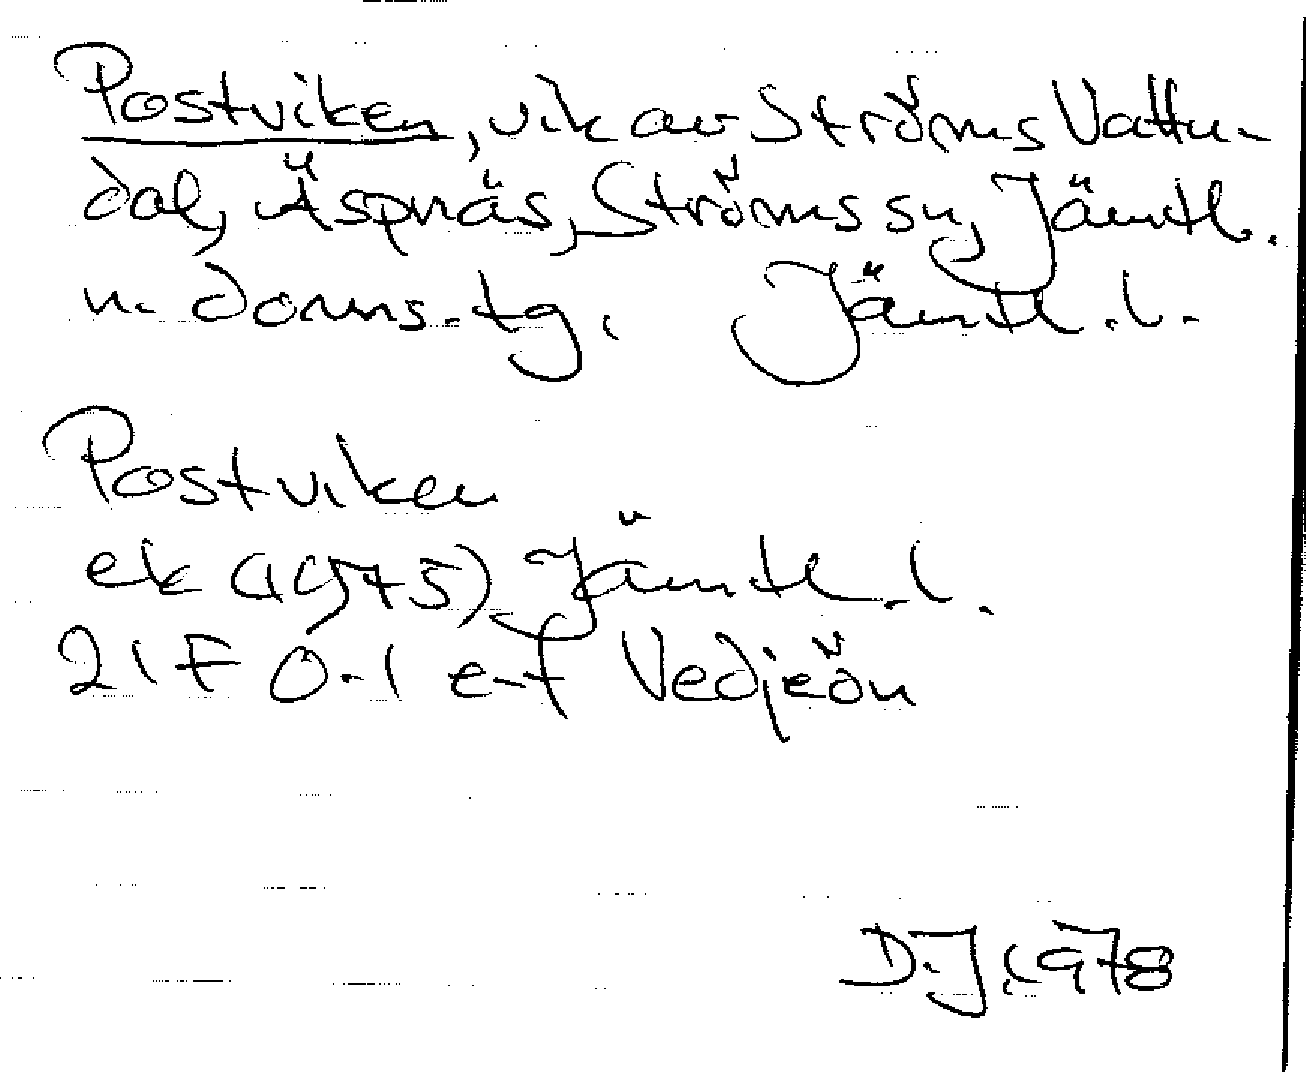 Postviken, vik av Ströms Vattu-
dal, Äspnäs, Ströms sn, Jämtl.
n. doms.tg. Jämtl.l.
Postviken
ek (1975) Jämtl.l.
21F 0-1 e-f Vedjeön
D.J 1978